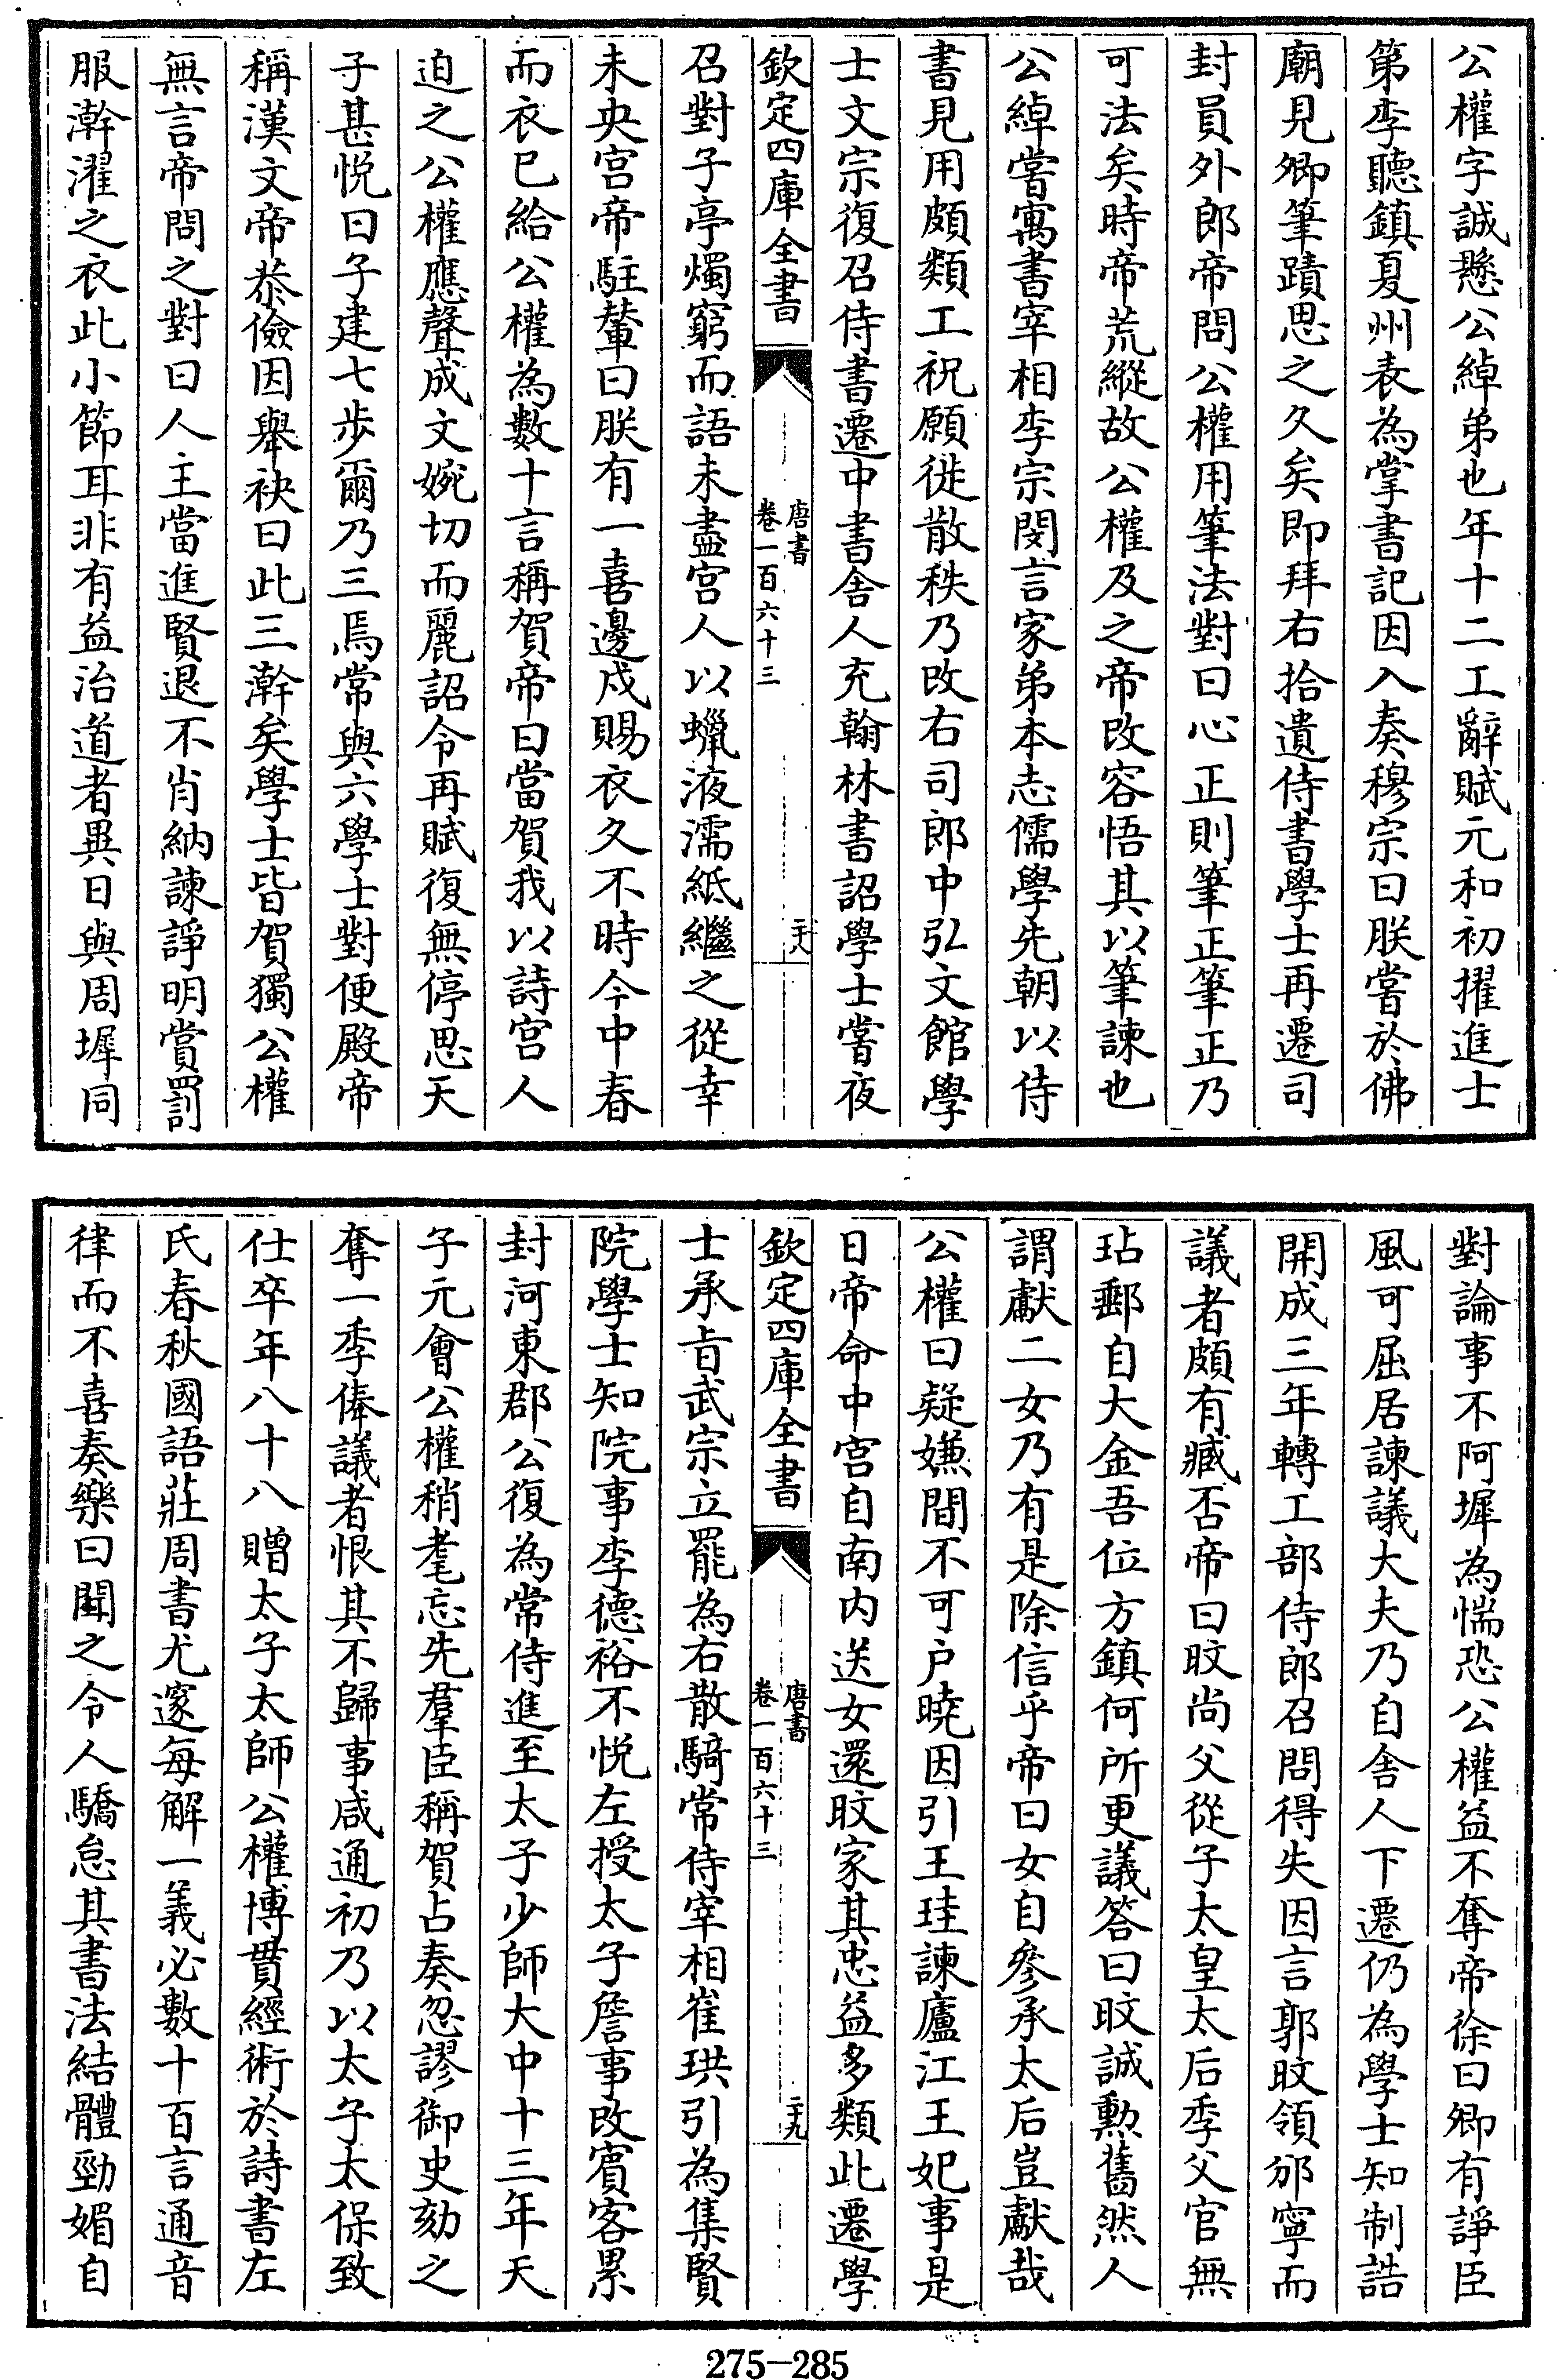 公權字誠懸公綽弟也年十二工辭賦元和初擢進士
第李聽鎮夏州表為掌書記因入奏穆宗曰朕嘗於佛
廟見卿筆蹟思之久矣即拜右拾遺侍書學士再遷司
封員外郎帝問公權用筆法對曰心正則筆正筆正乃
可法矣時帝荒縱故公權及之帝改容悟其以筆諫也
公綽嘗寓書宰相李宗閔言家弟本志儒學先朝以侍
書見用頗類工祝願徙散秩乃改右司郎中弘文館學
士文宗復召侍書遷中書舍人充翰林書詔學士嘗夜
欽定四庫全書
唐書
卷一百六十三
二十八
召對子亭燭窮而語未盡宮人以蠟液濡紙繼之從幸
未央宮帝駐輦曰朕有一喜邊戍賜衣久不時今中春
而衣已給公權為數十言稱賀帝曰當賀我以詩宮人
迫之公權應聲成文婉切而麗詔令再賦復無停思天
子甚悅曰子建七步爾乃三焉常與六學士對便殿帝
稱漢文帝恭儉因舉袂曰此三澣矣學士皆賀獨公權
無言帝問之對曰人主當進賢退不肖納諫諍明賞罰
服澣濯之衣此小節耳非有益治道者異日與周墀同
對論事不阿墀為惴恐公權益不奪帝徐曰卿有諍臣
風可屈居諫議大夫乃自舍人下遷仍為學士知制誥
開成三年轉工部侍郎召問得失因言郭旼領邠寧而
議者頗有臧否帝曰旼尚父從子太皇太后季父官無
玷郵自大金吾位方鎮何所更議答曰旼誠勲舊然人
謂獻二女乃有是除信乎帝曰女自參承太后豈獻哉
公權曰疑嫌間不可戶曉因引王珪諫廬江王妃事是
日帝命中宮自南内送女還旼家其忠益多類此遷學
欽定四庫全書
唐書
卷一百六十三
二十九
士承旨武宗立罷為右散騎常侍宰相崔珙引為集賢
院學士知院事李德裕不悅左授太子詹事改賓客累
封河東郡公復為常侍進至太子少師大中十三年天
子元會公權稍耄忘先羣臣稱賀占奏忽謬御史劾之
奪一季俸議者恨其不歸事咸通初乃以太子太保致
仕卒年八十八贈太子太師公權博貫經術於詩書左
氏春秋國語莊周書尤邃每解一義必數十百言通音
律而不喜奏樂曰聞之令人驕怠其書法結體勁媚自
275-285